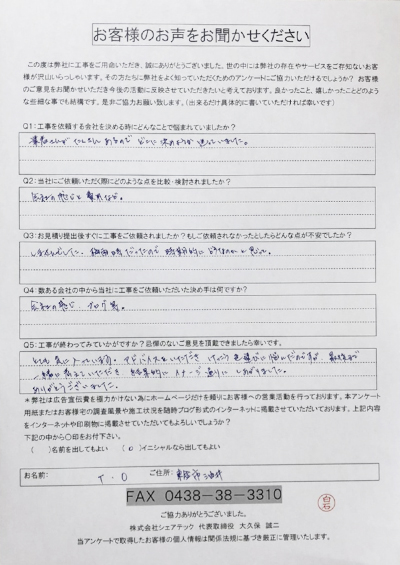 お客様のお声をお聞かせください
この度は弊社に工事をご用命いただき、誠にありがとうございました。世の中には弊社の存在やサービスをご存知ないお客様が沢山いらっしゃいます。その方たちに弊社をよく知っていただくためのアンケートにご協力いただけるでしょうか？ お客様のご意見をお聞かせいただき今後の活動に反映させていただきたいと考えております。良かったこと、嬉しかったことどのような些細な事でも結構です。是非ご協力お願い致します。（出来るだけ具体的に書いていただければ幸いです）
Q1：工事を依頼する会社を決める時にどんなことで悩まれていましたか？
業者さんが たくさん あるので どこに 決めようか 迷っていました。
Q2：当社にご依頼いただく際にどのような点を比較・検討されましたか？
会社の感じと 費用など。
Q3：お見積り提出後すぐに工事をご依頼されましたか？もしご依頼されなかったとしたらどんな点が不安でしたか？
梅雨の時だったので 時期的に どうなのかと思って。
Q4：数ある会社の中から当社に工事をご依頼いただいた決め手は何ですか？
会社の感じ、ブログ等。
Q5：工事が終わってみていかがですか？忌憚のないご意見を頂戴できましたら幸いです。
とても 気に入っています。アドバイスをいただき けっこう色選びに悩んだのですが、最後まで
一緒に考えていただき 結果的に イメージ通りに しあがりました。
ありがとうございました。
＊弊社は広告宣伝費を極力かけない為にホームページだけを頼りにお客様への営業活動を行っております。本アンケート用紙またはお客様宅の調査風景や施工状況を随時ブログ形式のインターネットに掲載させていただいております。上記内容をインターネットや印刷物に掲載させていただいてもよろしいでしょうか？
下記の中から〇印をお付下さい。
（　）名前を出してもよい　（〇）イニシャルなら出してもよい
お名前： T・O ご住所：
FAX 0438-38-3310
白石
ご協力ありがとうございました。
株式会社シェアテック 代表取締役 大久保 誠二
当アンケートで取得したお客様の個人情報は関係法規に基づき厳正に管理いたします。